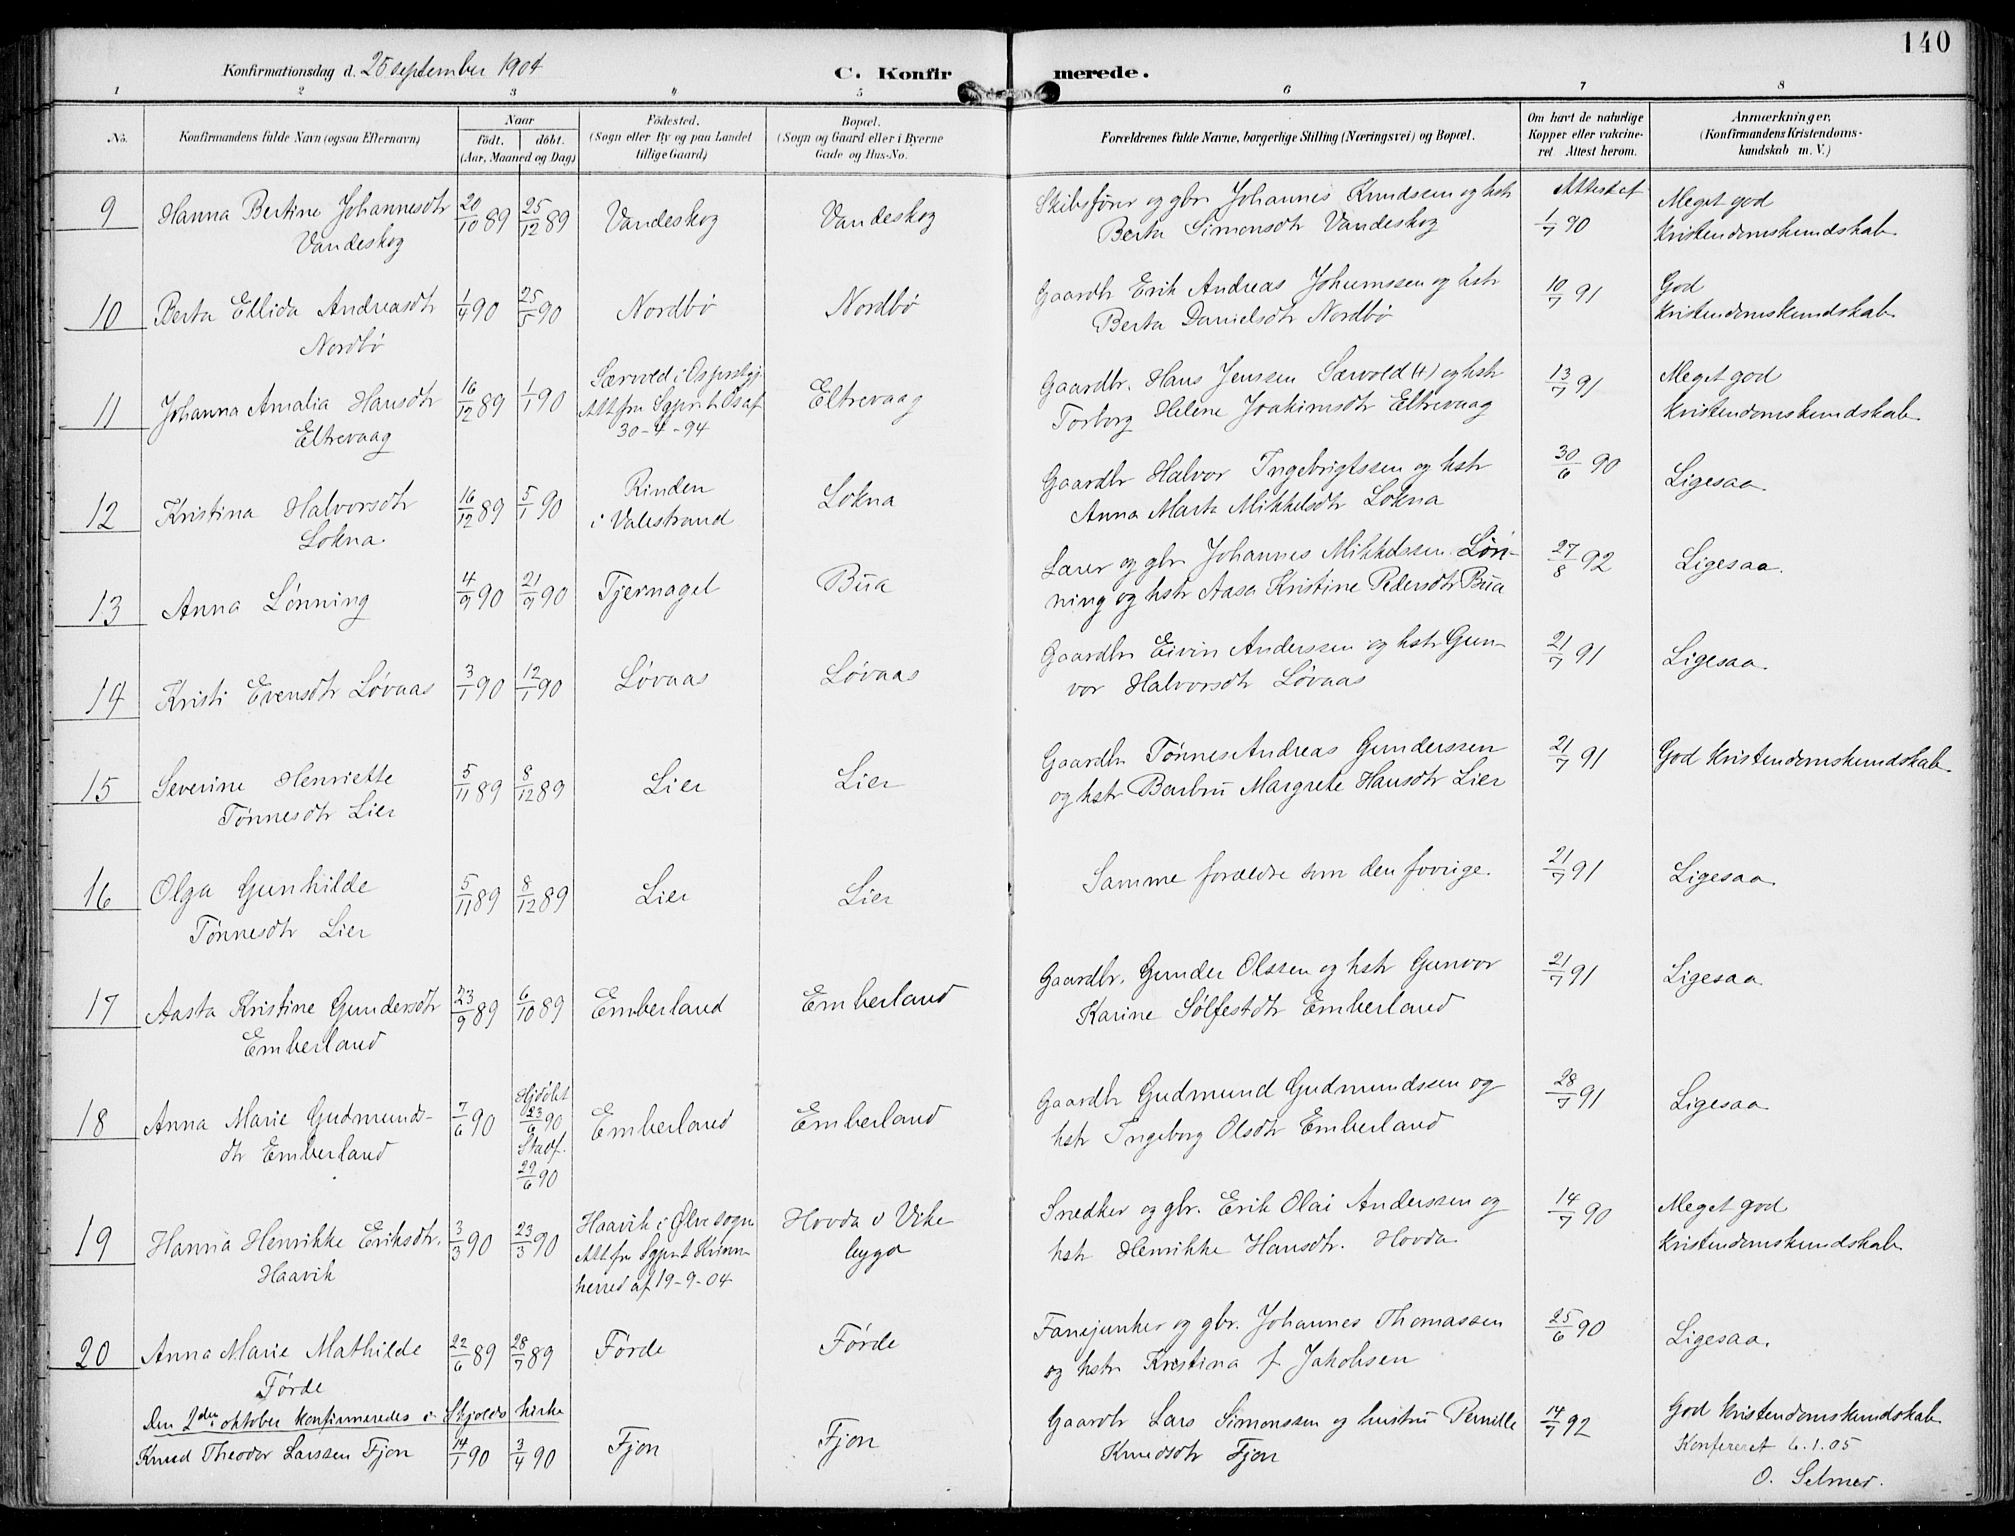 140
Konfirmationsdag d. 25 september 1904
C. Konfirmerede.
1 2 3 4 5 6 7 8
No.
Konfirmandens fulde Navn (ogsaa Efternavn)
Naar
födt. döbt.
(Aar, Maaned og Dag)
Födested.
(Sogn eller By og paa Landet
tillige Gaard)
Bopæl.
(Sogn og Gaard eller i Byerne
Gade og Hus-No.
Forældrenes fulde Navne, borgerlige Stilling (Næringsvei) og Bopæl.
Om havt de naturlige
Kopper eller vakcine-
ret. Attest herom.
Anmærkninger.
(Konfirmandens Kristendoms-
kundskab m. V.)
9 Hanna Bertine Johannesdtr 20/10 89 25/12 89 Vandeskog Vandeskog Skibsfører og gbr Johannes Knudssen og hstr Attest af Meget god
Vandeskog Berta Simonsdtr Vandeskog 1/7 90 kristendomskundskab
10 Berta Ellida Andreasdtr 1/4 90 25/5 90 Nordbø Nordbø Gaardbr Erik Andreas Johannssen og hstr 10/7 91 God
Nordbø Berta Danielsdtr Nordbø kristendomskundskab
11 Johanna Amalia Hansdtr 16/12 89 1/1 90 Særvold i Os prstgj Eltrevaag Gaardbr. Hans Jenssen Særvold (†) og hstr 13/7 91 Meget god
Eltrevaag Att fra Sgprst Os af Torborg Helene Joakimsdtr Eltrevaag kristendomskundskab
30-4-94
12 Kristina Halvorsdtr 16/12 89 5/1 90 Rinden Lokna Gaardbr Halvor Ingebrigtssen og hstr 30/6 90 Ligesaa
Lokna i Valestrand Anna Marta Mikkelsdtr Lokna
13 Anna Lønning 4/9 90 21/9 90 Tjernagel Bua Lærer og gbr Johannes Mikkelssen Løn- 27/8 92 Ligesaa
ning og hstr Aasa Kristine Pedersdtr Bua
14 Kristi Evensdtr Løvaas 3/1 90 12/1 90 Løvaas Løvaas Gaardbr Eivin Anderssen og hstr Gun- 21/7 91 Ligesaa
vor Halvorsdtr Løvaas
15 Severine Henriette 5/11 89 8/12 89 Lier Lier Gaardbr Tønnes Andreas Gunderssen 21/7 91 God kristendomskundskab
Tønnesdtr Lier og hstr Barbru Margrete Hansdtr Lier
16 Olga Gunhilde 5/11 89 8/12 89 Lier Lier Samme forældre som den forrige. 21/7 91 Ligesaa
Tønnesdtr Lier
17 Aasta Kristine Gundersdtr 23/9 89 6/10 89 Emberland Emberland Gaardbr. Gunder Olssen og hstr Gunvor 21/7 91 Ligesaa
Emberland Karine Sølfestdtr Emberland
18 Anna Marie Gudmunds- 7/6 90 Hjdøbt 23/6 90 Emberland Emberland Gaardbr Gudmund Gudmundssen og 28/7 91 Ligesaa
dtr Emberland Stadf. 29/6 90 hstr Ingeborg Olsdtr Emberland
19 Hanna Henrikke Eriksdtr. 3/3 90 23/3 90 Haavik i Ølve sogn Hovda i Vike Snedker og gbr. Erik Olai Anderssen og 14/7 90 Meget god
Haavik Att fra Sgprst Kvinn- bygd hstr Henrikke Hansdtr. Hovda kristendomskundskab
herred af 19-9-04
20 Anna Marie Mathilde 22/6 89 28/7 89 Førde Førde Fanejunker og gbr. Johannes Thomassen 25/6 90 Ligesaa.
Førde og hstr Kristina f Jakobsen
Den 2den oktober konfirmeredes i Skjolds kirke
Knud Theodor Larssen Fjon 14/1 90 3/4 90 Fjon Fjon Gaardbr Lars Simonssen og hustru Pernille 14/7 92 God kristendomskundskab
Knudsdtr Fjon Konfereret 6.1.05
O. Selmer.